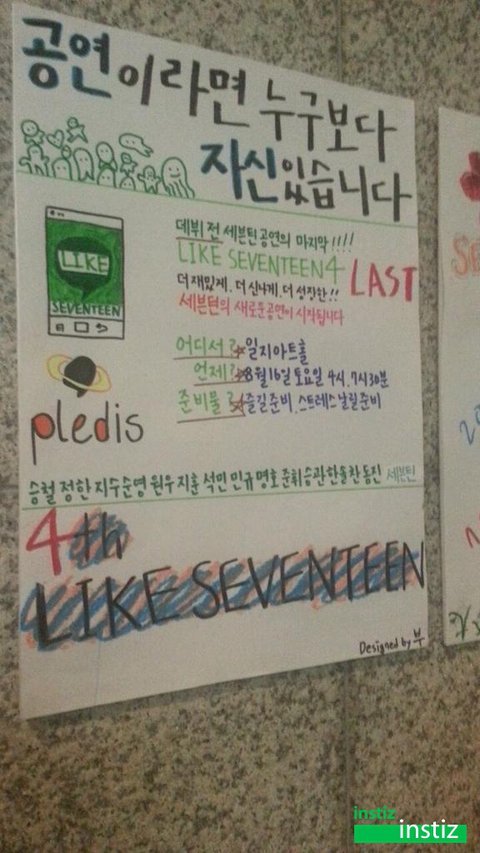 공연이라면 누구보다
자신있습니다
LIKE
SEVENTEEN
데뷔 전 세븐틴공연의 마지막!!!!
LIKE SEVENTEEN4 LAST
더 재밌게. 더 신나게. 더 성장한!!
세븐틴의 새로운공연이 시작됩니다
어디서? 일지아트홀
언제? 8월16일 토요일 4시. 7시30분
준비물? 즐길준비. 스트레스 날릴준비
pledis
승철 정한 지수 순영 원우 지훈 석민 민규 명호 준휘 승관 한솔 찬 동진 세븐틴
4th
LIKE SEVENTEEN
Designed by 부
SE
instiz
instiz